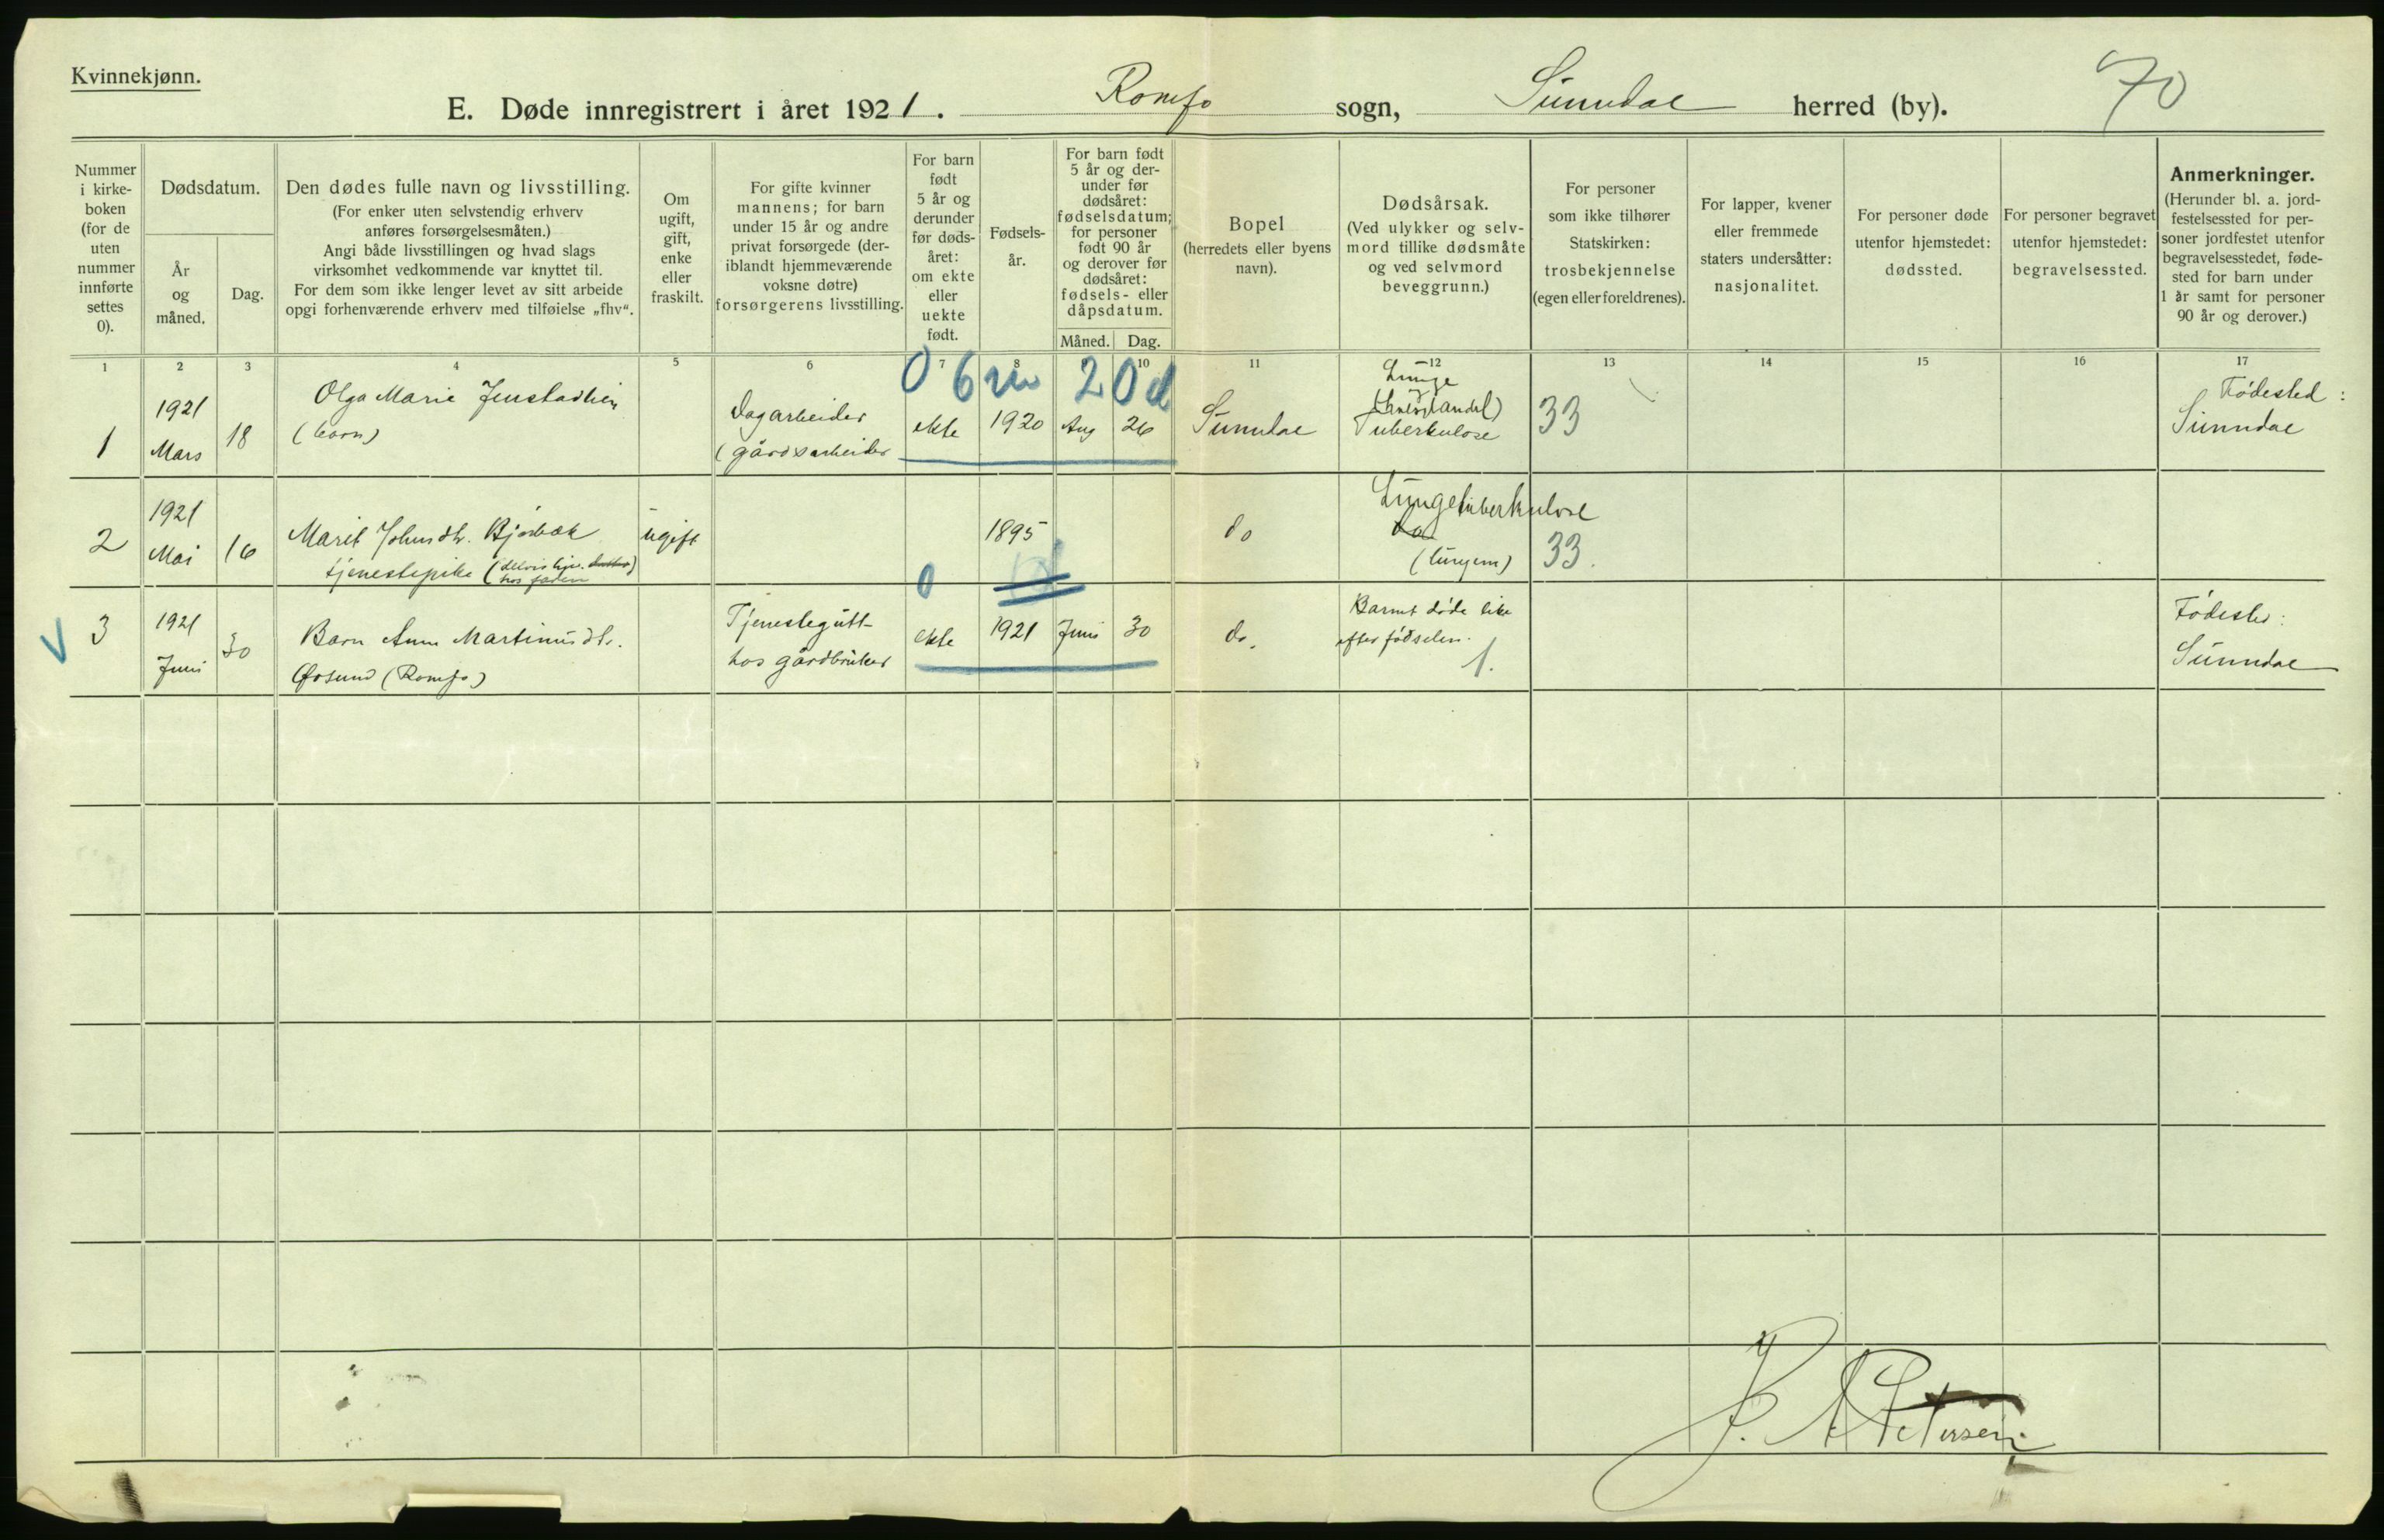 Kvinnekjønn.
E. Døde innregistrert i året 1921. Romfo sogn, Sunndal herred (by). 70
Nummer
i kirke-
boken
(for de
uten
nummer
innførte
settes
0).
Dødsdatum.
År
og
måned.
Dag.
Den dødes fulle navn og livsstilling.
(For enker uten selvstendig erhverv
anføres forsørgelsesmåten.)
Angi både livsstillingen og hvad slags
virksomhet vedkommende var knyttet til.
For dem som ikke lenger levet av sitt arbeide
opgi forhenværende erhverv med tilføielse „fhv“.
Om
ugift,
gift,
enke
eller
fraskilt.
For gifte kvinner
mannens; for barn
under 15 år og andre
privat forsørgede (der-
iblandt hjemmeværende
voksne døtre)
forsørgerens livsstilling.
For barn
født
5 år og
derunder
før døds-
året:
om ekte
eller
uekte
født.
Fødsels-
år.
For barn født
5 år og der-
under før
dødsåret:
fødselsdatum;
for personer
født 90 år
og derover før
dødsåret:
fødsels- eller
dåpsdatum.
Måned. Dag.
Bopel
(herredets eller byens
navn).
Dødsårsak.
(Ved ulykker og selv-
mord tillike dødsmåte
og ved selvmord
beveggrunn.)
For personer
som ikke tilhører
Statskirken:
trosbekjennelse
(egen eller foreldrenes).
For lapper, kvener
eller fremmede
staters undersåtter:
nasjonalitet.
For personer døde
utenfor hjemstedet:
dødssted.
For personer begravet
utenfor hjemstedet:
begravelsessted.
Anmerkninger.
(Herunder bl. a. jord-
festelsessted for per-
soner jordfestet utenfor
begravelsesstedet, føde-
sted for barn under
1 år samt for personer
90 år og derover.)
1 2 3 4 5 6 7 8 9 10 11 12 13 14 15 16 17
0 6 m 20 d
1
1921
Mars
18
Olga Marie Jenstadlien
(barn)
Dagarbeider
(gårdsarbeider
ekte
1920
Aug
26
Sunndal
Lunge
Tuberkulose
33
Fødested:
Sunndal
2
1921
Mai
16
Marit Johnsdtr.
tjenestepike
hos faren
ugift
1895
do
Lungetuberkulose
do
(lungen)
33.
0
V
3
1921
Juni
30
Barn Anne Martinusdtr.
(Romfo)
Tjenestegutt
hos gårdbruker
ekte
1921
Juni
30
do.
Barnet døde like
efter fødselen.
1.
Fødested:
Sunndal
Petersen